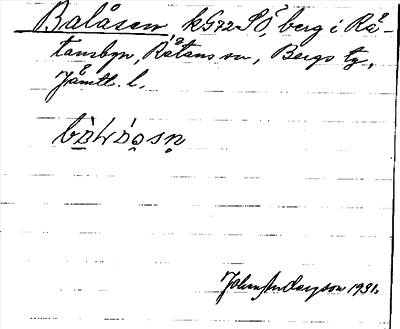 Balåsen, kG72SÖ, berg i Rå-
tansbyn, Råtans sn, Bergs tg,
Jämtl. l.
John Andersson 1931.